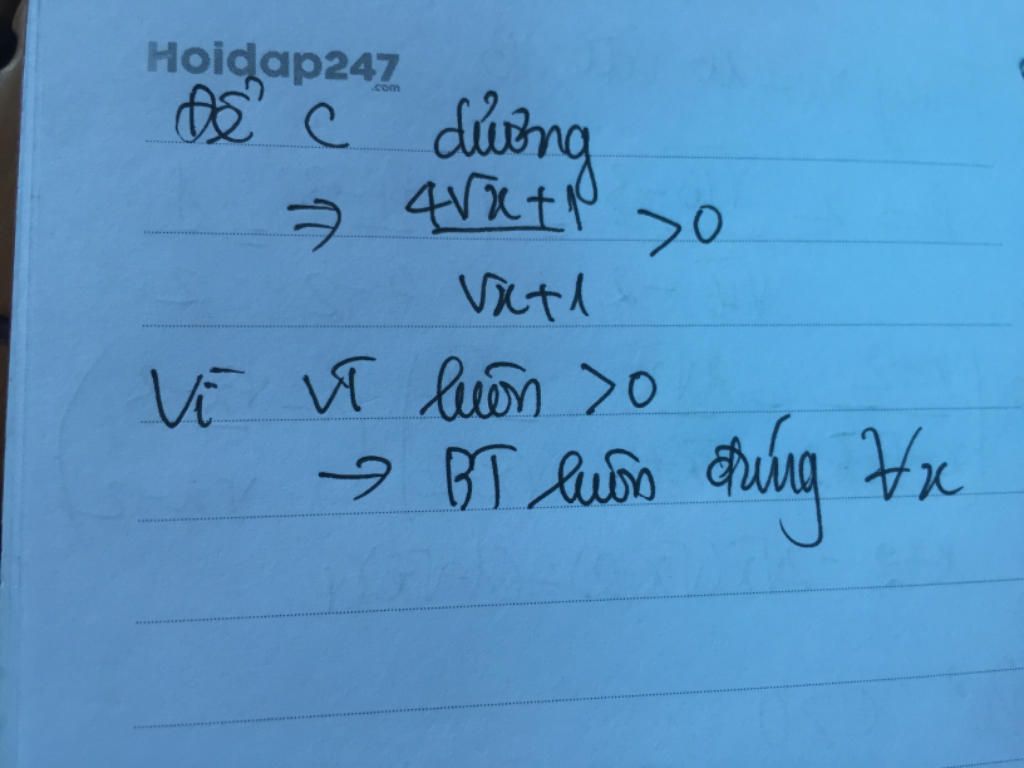 Hoidap247
.com
Để C dương
⇒ 4√x+1 / √x+1 >0
Vì VT luôn >0
→ BT luôn đúng ∀x